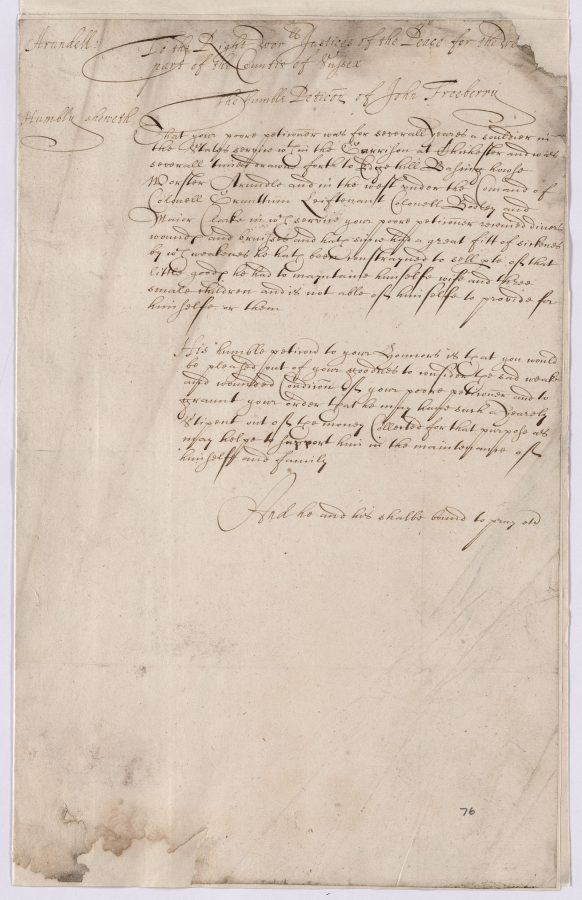 Arundell:
To the Right Wor:ll Justices of the Peace for the We
part of the Countie of Sussex
The humble Peticon of John Freeberry
Humbly sheweth
That your poore petitioner was for severall yeares a souldier in
the States service wch in the Garrison at Chichester and was
severall times drawne forth to Edge hill Basing house
Worster Arundle and in the west under the Comand of
Colonell Leiftenant Colonell and
Maior Clarke in wch service your poore petitioner receaved divers
wounds and bruises and hath since had a great fitt of sicknes
by wch weaknes he hath been constrained to sell pte of that
little goods he had to maintaine himselfe wife and three
smale children and is not able of himselfe to provide for
himselfe or them
His humble petition to your Honnors is that you would
be pleased out of your goodnes to consider the sad weake
and wounded Condition of your poore petitioner and to
graunt your order that he may have such a yearely
Stipent out of the money Collected for that purpose as
may helpe to support him in the maintenance of
himselfe and family
And he and his shalbe bound to pray etc
76